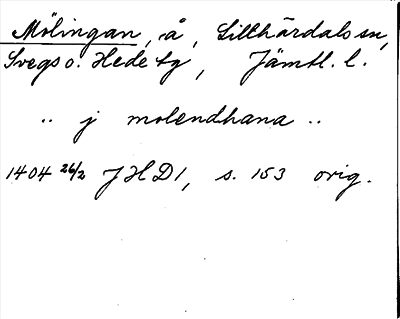 Mölingan, å, Lillhärdals sn,
Svegs o. Hede tg, Jämtl. l.
.. j molendhana ..
1404 26/2 JHD 1, s. 153 orig.